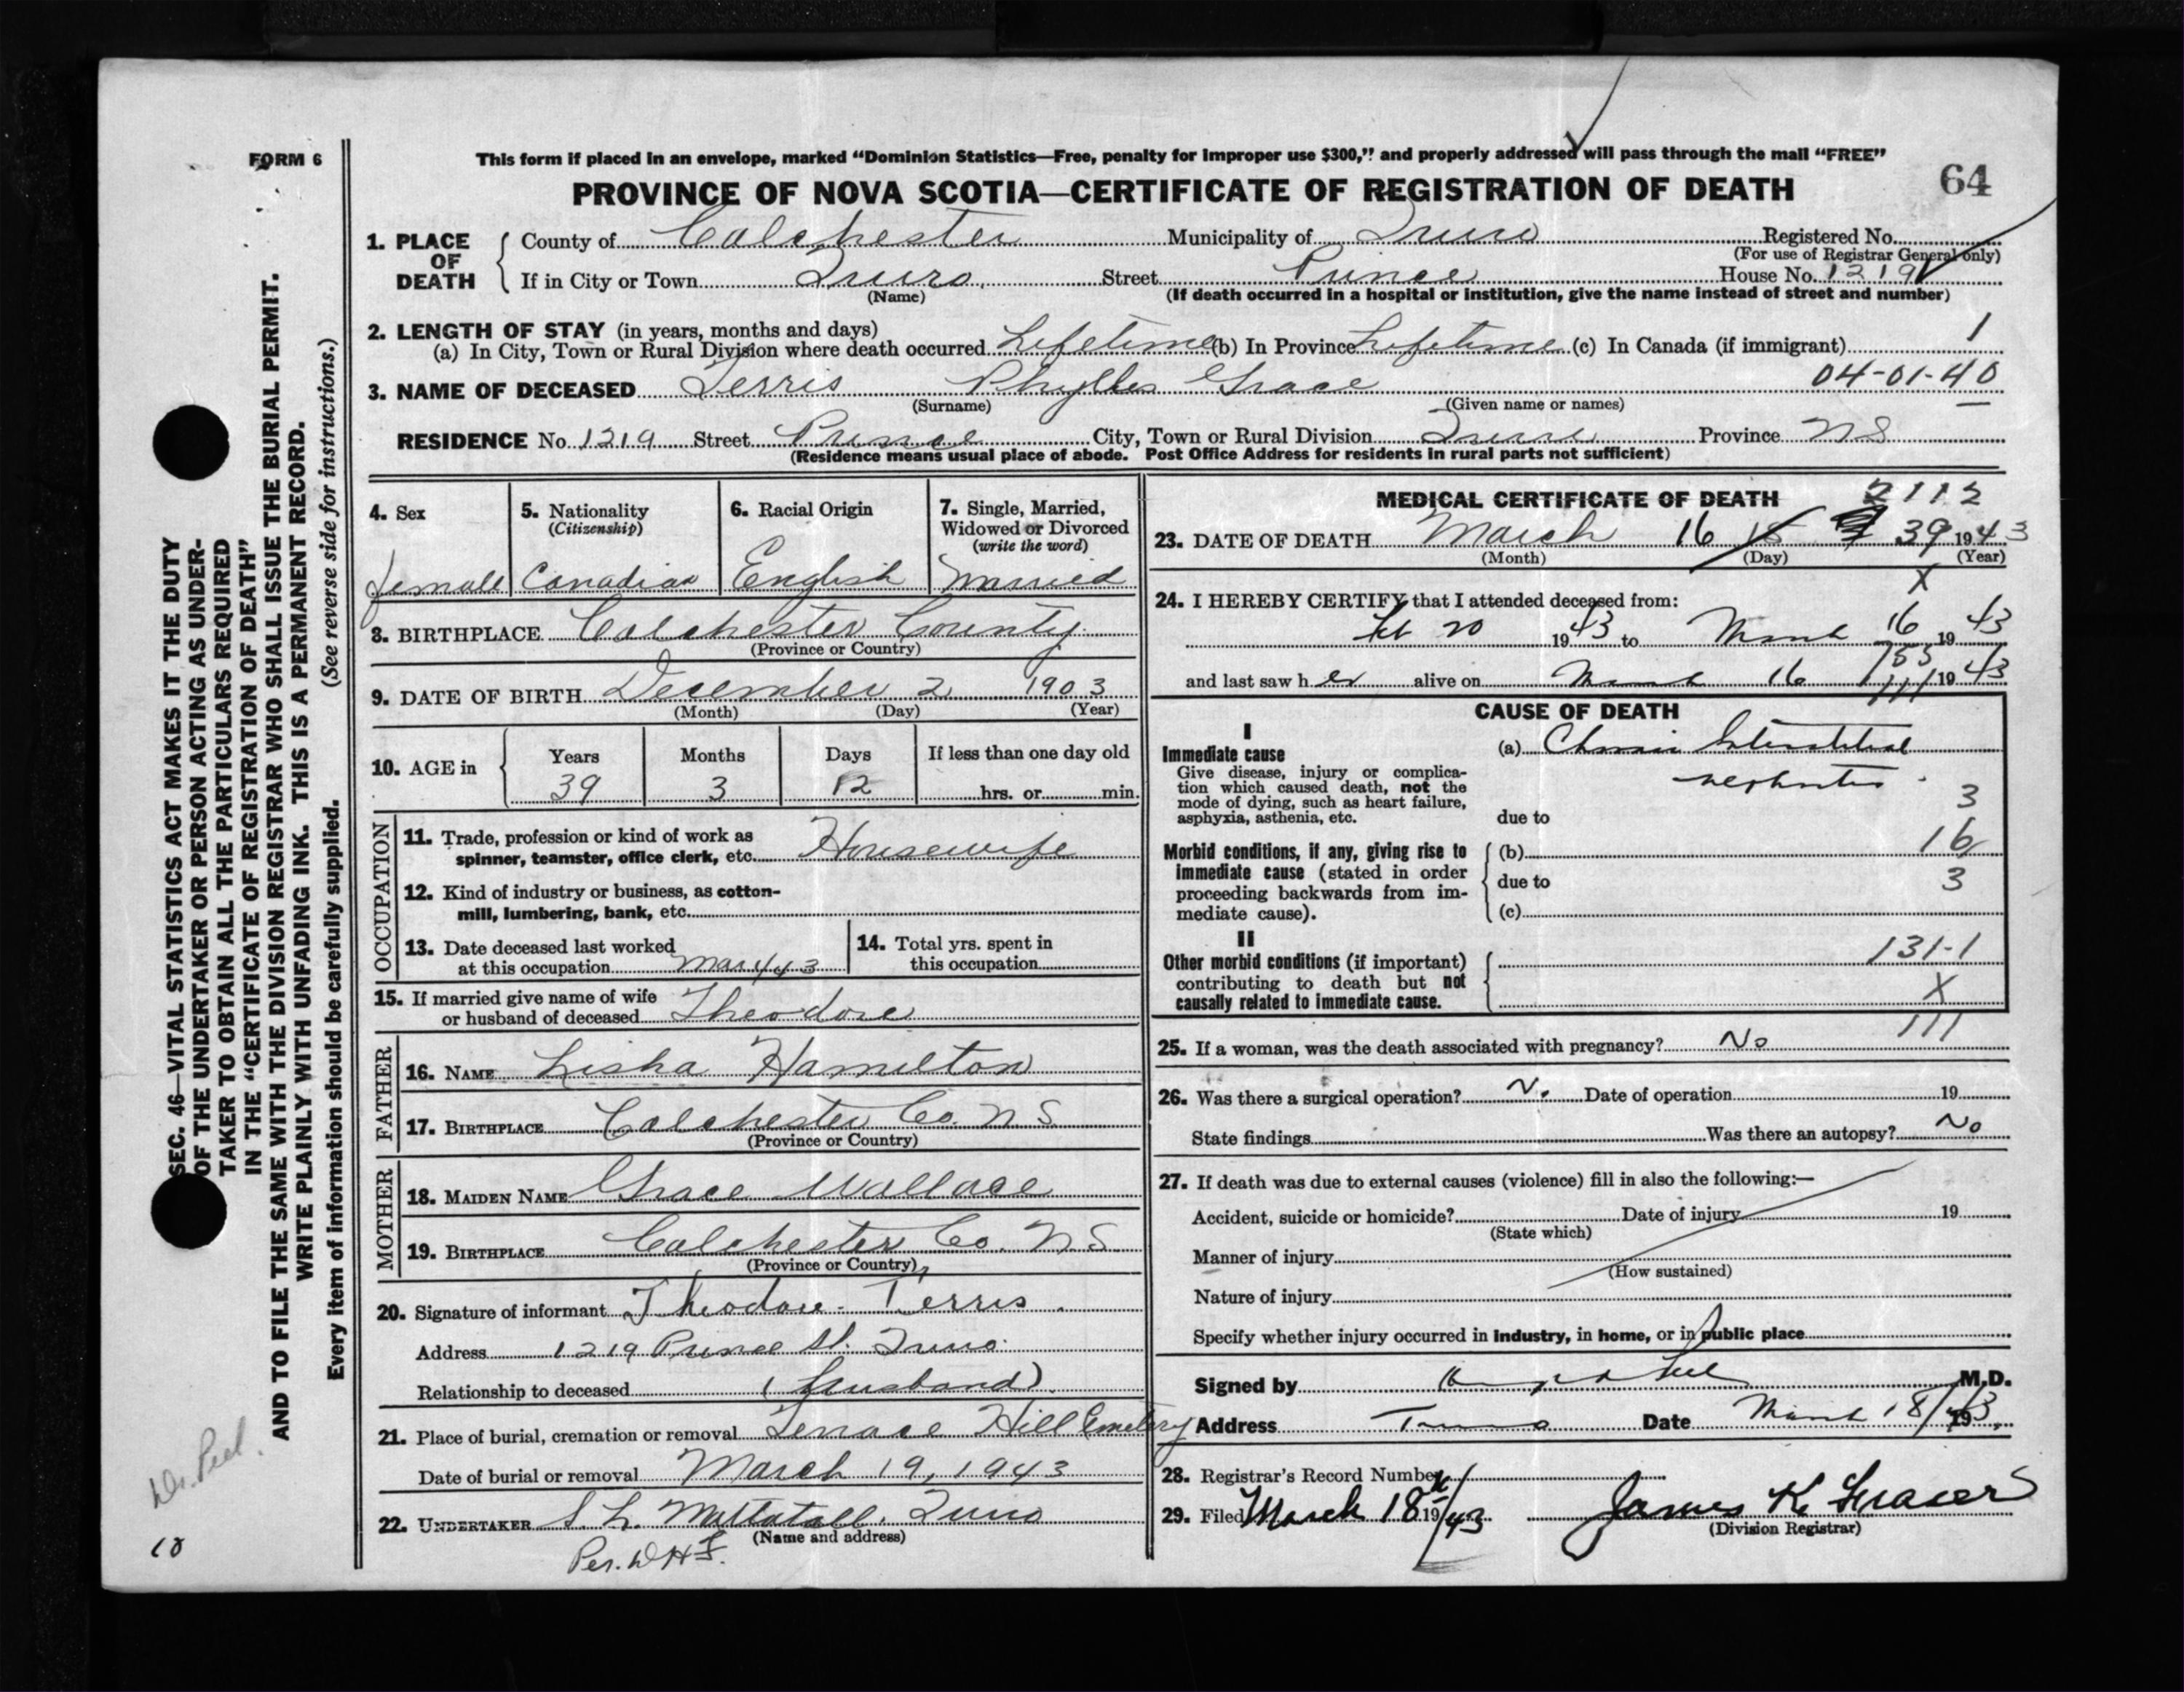 FORM 6
This form if placed in an envelope, marked “Dominion Statistics—Free, penalty for improper use $300,” and properly addressed will pass through the mail “FREE”
PROVINCE OF NOVA SCOTIA—CERTIFICATE OF REGISTRATION OF DEATH 64
1. PLACE OF DEATH { County of Colchester Municipality of Truro Registered No.
(For use of Registrar General only)
If in City or Town Truro Street Prince House No. 1219
(Name) (If death occurred in a hospital or institution, give the name instead of street and number)
2. LENGTH OF STAY (in years, months and days) 1
(a) In City, Town or Rural Division where death occurred Lifetime (b) In Province Lifetime (c) In Canada (if immigrant)
04-01-40
3. NAME OF DECEASED Terris Phyllis Grace
(Surname) (Given name or names)
RESIDENCE No. 1219 Street Prince City, Town or Rural Division Truro Province NS
(Residence means usual place of abode. Post Office Address for residents in rural parts not sufficient)
4. Sex female
5. Nationality (Citizenship) Canadian
6. Racial Origin English
7. Single, Married, Widowed or Divorced (write the word) Married
8. BIRTHPLACE Colchester County
(Province or Country)
9. DATE OF BIRTH December 2 1903
(Month) (Day) (Year)
10. AGE in { Years 39 Months 3 Days 12 If less than one day old hrs. or min.
OCCUPATION
11. Trade, profession or kind of work as
spinner, teamster, office clerk, etc. Housewife
12. Kind of industry or business, as cotton-
mill, lumbering, bank, etc.
13. Date deceased last worked
at this occupation Mar 4/43
14. Total yrs. spent in
this occupation
15. If married give name of wife
or husband of deceased Theodore
FATHER
16. NAME Lisha Hamilton
17. BIRTHPLACE Colchester Co. N S
(Province or Country)
MOTHER
18. MAIDEN NAME Grace Wallace
19. BIRTHPLACE Colchester Co. N S
(Province or Country)
20. Signature of informant Theodore Terris
Address 1219 Prince St. Truro
Relationship to deceased (Husband)
21. Place of burial, cremation or removal Terrace Hill Cemetery
Date of burial or removal March 19, 1943
22. UNDERTAKER S. L. Mattatall, Truro
(Name and address)
Per. W H F.
MEDICAL CERTIFICATE OF DEATH 2112
23. DATE OF DEATH March 16 18 39 1943
(Month) (Day) (Year)
X
24. I HEREBY CERTIFY that I attended deceased from:
Feb 20 1943 to March 16 1943
and last saw her alive on March 16 1943
CAUSE OF DEATH
I
Immediate cause
Give disease, injury or complica-
tion which caused death, not the
mode of dying, such as heart failure,
asphyxia, asthenia, etc.
(a) Chronic Interstitial
nephritis
3
due to
Morbid conditions, if any, giving rise to
immediate cause (stated in order
proceeding backwards from im-
mediate cause).
(b) 16
due to 3
(c)
II
Other morbid conditions (if important)
contributing to death but not
causally related to immediate cause.
131-1
X
111
25. If a woman, was the death associated with pregnancy? No
26. Was there a surgical operation? No Date of operation 19
State findings Was there an autopsy? No
27. If death was due to external causes (violence) fill in also the following:—
Accident, suicide or homicide? Date of injury 19
(State which)
Manner of injury
(How sustained)
Nature of injury
Specify whether injury occurred in industry, in home, or in public place
Signed by M.D.
Address Truro Date March 18/1943
28. Registrar's Record Number
29. Filed March 18 19/43 James K. Fraser
(Division Registrar)
SEC. 46—VITAL STATISTICS ACT MAKES IT THE DUTY
OF THE UNDERTAKER OR PERSON ACTING AS UNDER-
TAKER TO OBTAIN ALL THE PARTICULARS REQUIRED
IN THE “CERTIFICATE OF REGISTRATION OF DEATH”
AND TO FILE THE SAME WITH THE DIVISION REGISTRAR WHO SHALL ISSUE THE BURIAL PERMIT.
WRITE PLAINLY WITH UNFADING INK. THIS IS A PERMANENT RECORD.
Every item of information should be carefully supplied. (See reverse side for instructions.)
Dr. Peel.
18